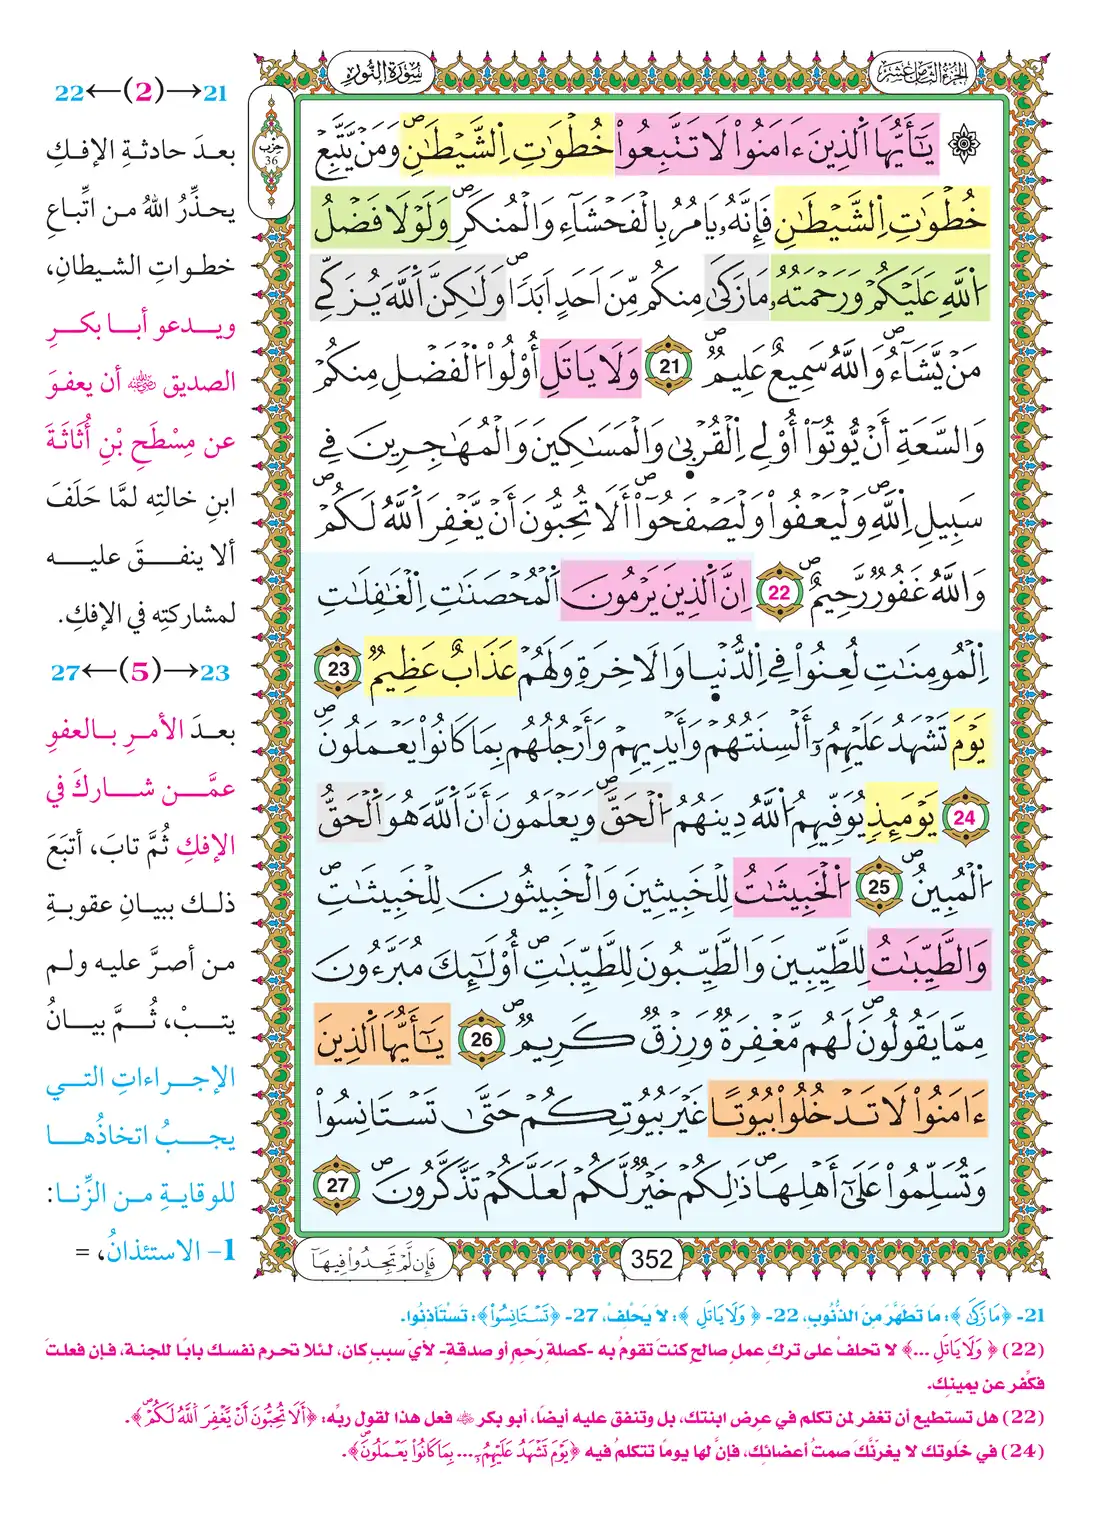 سُورَةُ النُّورِ
الجُزْءُ الثَّامِنَ عَشَرَ
حِزْب
36
يَٰٓأَيُّهَا اَ۬لذِينَ ءَامَنُواْ لَا تَتَّبِعُواْ خُطْوَٰتِ اِ۬لشَّيْطَٰنِۖ وَمَنْ يَّتَّبِعْ
خُطْوَٰتِ اِ۬لشَّيْطَٰنِ فَإِنَّهُۥ يَامُرُ بِالْفَحْشَآءِ وَالْمُنكَرِۖ وَلَوْلَا فَضْلُ
اُ۬للَّهِ عَلَيْكُمْ وَرَحْمَتُهُۥ مَا زَكَىٰ مِنكُم مِّنَ اَحَدٍ اَبَداٗۖ وَلَٰكِنَّ اَ۬للَّهَ يُزَكِّے
مَنْ يَّشَآءُۖ وَاللَّهُ سَمِيعٌ عَلِيمٞۖ 21 وَلَا يَاتَلِ أُوْلُواْ اُ۬لْفَضْلِ مِنكُمْ
وَالسَّعَةِ أَنْ يُّوتُوٓاْ أُوْلِے اِ۬لْقُرْبۭيٰ وَالْمَسَٰكِينَ وَالْمُهَٰجِرِينَ فِے
سَبِيلِ اِ۬للَّهِۖ وَلْيَعْفُواْ وَلْيَصْفَحُوٓاْۖ أَلَا تُحِبُّونَ أَنْ يَّغْفِرَ اَ۬للَّهُ لَكُمْۖ
وَاللَّهُ غَفُورٞ رَّحِيمٌۖ 22 اِنَّ اَ۬لذِينَ يَرْمُونَ اَ۬لْمُحْصَنَٰتِ اِ۬لْغَٰفِلَٰتِ
اِ۬لْمُومِنَٰتِ لُعِنُواْ فِے اِ۬لدُّنْيۭا وَالَاخِرَةِ وَلَهُمْ عَذَابٌ عَظِيمٞ 23
يَوْمَ تَشْهَدُ عَلَيْهِمُۥٓ أَلْسِنَتُهُمْ وَأَيْدِيهِمْ وَأَرْجُلُهُم بِمَا كَانُواْ يَعْمَلُونَۖ
24 يَوْمَئِذٖ يُوَفِّيهِمُ اُ۬للَّهُ دِينَهُمُ اُ۬لْحَقَّۖ وَيَعْلَمُونَ أَنَّ اَ۬للَّهَ هُوَ اَ۬لْحَقُّ
اُ۬لْمُبِينُۖ 25 اُ۬لْخَبِيثَٰتُ لِلْخَبِيثِينَ وَالْخَبِيثُونَ لِلْخَبِيثَٰتِۖ
وَالطَّيِّبَٰتُ لِلطَّيِّبِينَ وَالطَّيِّبُونَ لِلطَّيِّبَٰتِۖ أُوْلَٰٓئِكَ مُبَرَّءُونَ
مِمَّا يَقُولُونَۖ لَهُم مَّغْفِرَةٞ وَرِزْقٞ كَرِيمٞۖ 26 يَٰٓأَيُّهَا اَ۬لذِينَ
ءَامَنُواْ لَا تَدْخُلُواْ بُيُوتاً غَيْرَ بُيُوتِكُمْ حَتَّىٰ تَسْتَانِسُواْ
وَتُسَلِّمُواْ عَلَىٰٓ أَهْلِهَاۖ ذَٰلِكُمْ خَيْرٞ لَّكُمْ لَعَلَّكُمْ تَذَّكَّرُونَۖ 27
352
فَإِن لَّمْ تَجِدُواْ فِيهَآ
21→(2)←22
بعدَ حادثةِ الإفكِ
يحذِّرُ اللهُ من اتِّباعِ
خطواتِ الشيطانِ،
ويدعو أبا بكرٍ
الصديق ﵁ أن يعفوَ
عن مِسْطَحِ بْنِ أُثَاثَةَ
ابنِ خالتِه لمَّا حَلَفَ
ألا ينفقَ عليه
لمشاركتِه في الإفكِ.
23→(5)←27
بعدَ الأمرِ بالعفوِ
عمَّن شاركَ في
الإفكِ ثُمَّ تابَ، أتبَعَ
ذلك ببيانِ عقوبةِ
من أصرَّ عليه ولم
يتبْ، ثُمَّ بيانُ
الإجراءاتِ التي
يجبُ اتخاذُها
للوقايةِ من الزِّنا:
1- الاستئذانُ، =
21- ﴿مَا زَكَىٰ﴾: مَا تَطَهَّرَ مِنَ الذُّنُوبِ، 22- ﴿وَلَا يَاتَلِ﴾: لَا يَحْلِفْ، 27- ﴿تَسْتَانِسُواْ﴾: تَسْتَأذِنُوا.
(22) ﴿وَلَا يَاتَلِ ...﴾ لا تحلفْ على تركِ عملٍ صالحٍ كنتَ تقومُ به -كصلةِ رَحِمٍ أو صدقةٍ- لأيِّ سببٍ كان، لئلا تحرم نفسك بابًا للجنة، فإن فعلتَ
فكفِّر عن يمينِك.
(22) هل تستطيع أن تغفر لمن تكلم في عرض ابنتك، بل وتنفق عليه أيضًا، أبو بكر ﵁ فعل هذا لقول ربِّه: ﴿أَلَا تُحِبُّونَ أَنْ يَّغْفِرَ اَ۬للَّهُ لَكُمْۖ﴾.
(24) في خَلوتك لا يغرنَّكَ صمتُ أعضائِك، فإنَّ لها يومًا تتكلمُ فيه ﴿يَوْمَ تَشْهَدُ عَلَيْهِمُۥٓ ... بِمَا كَانُواْ يَعْمَلُونَۖ﴾.